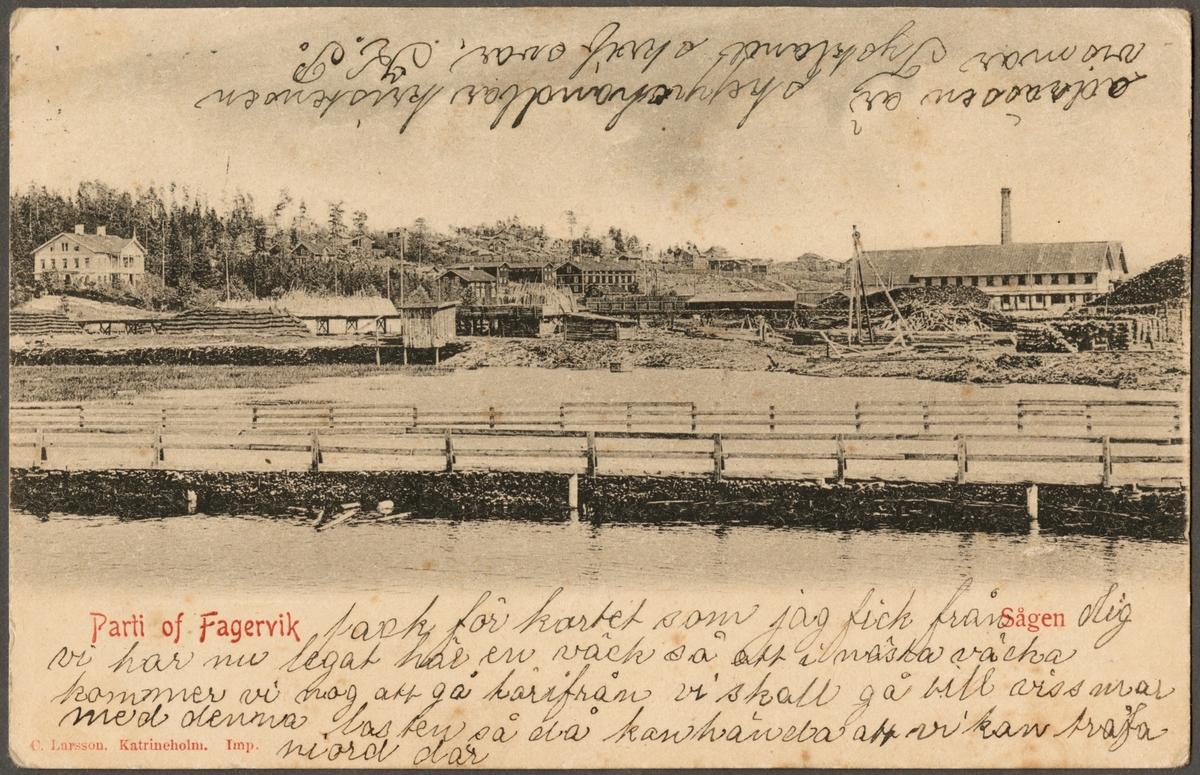 adrässen är skeppshandlar kristensen
vismar Tyskland skrif svar. K.P.
Parti of Fagervik
Sågen
tack för kortet som jag fick från dig
vi har nu legat här en väck så att i nästa väcka
kommer vi nog att gå härifrån vi skall gå till vissmar
med denna lasten så då kanhända att vi kan träfa
niord där
C. Larsson. Katrineholm. Imp.